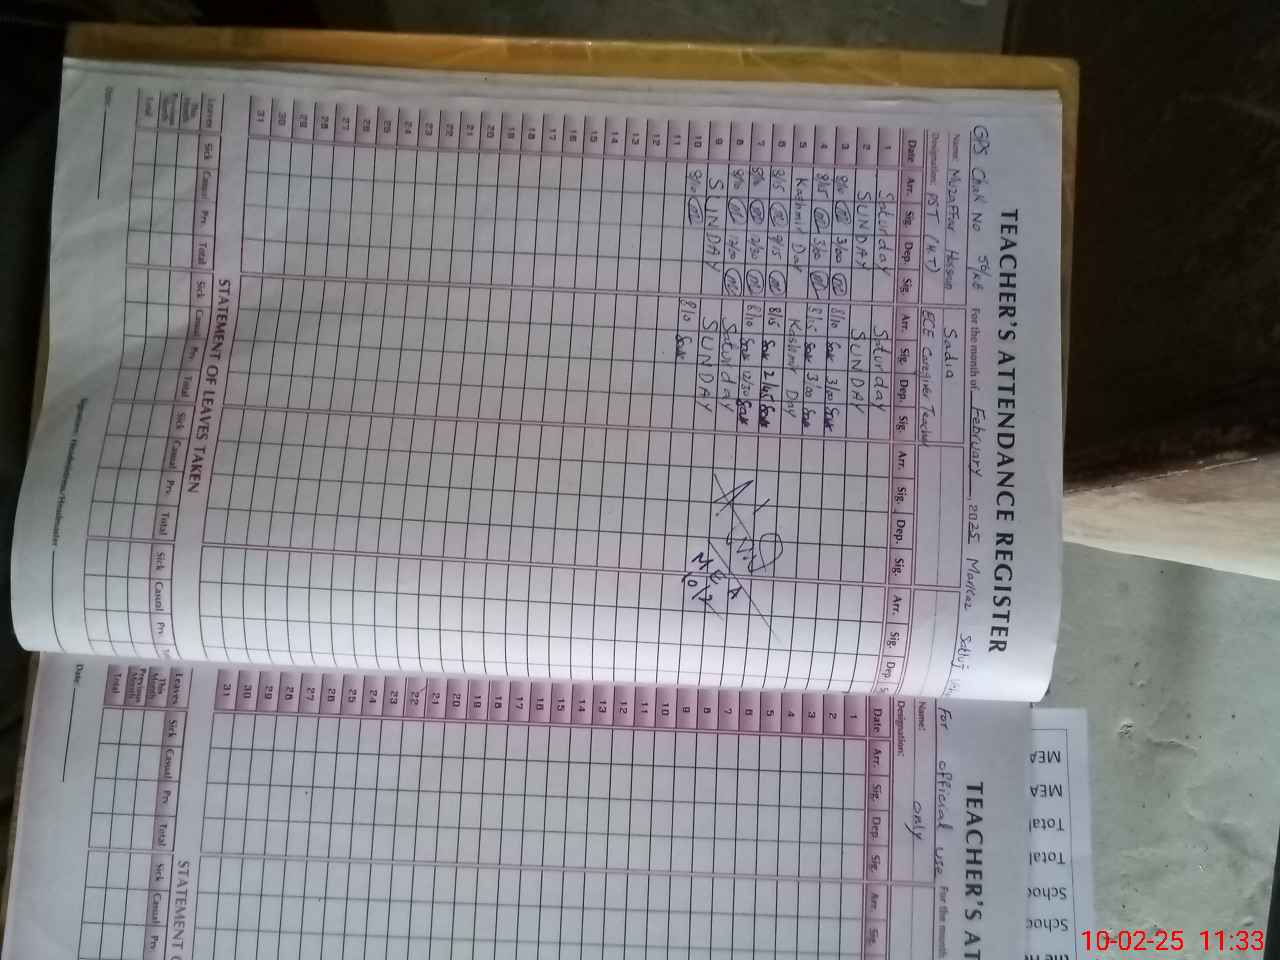 TEACHER'S ATTENDANCE REGISTER
GPS Chak No 50/KB For the month of February, 2025 Markaz
Name: Muzaffar Hussain Sadia
Designation: PST (H.T) ECE Caregiver Teacher
Date Arr. Sig. Dep. Sig. Arr. Sig. Dep. Sig. Arr. Sig. Dep. Sig. Arr. Sig. Dep.
1 Saturday Saturday
2 SUNDAY SUNDAY
3 8/10 3/00 8/10 3/00
4 8/15 3/00 8/15 3/00
5 Kashmir Day Kashmir Day
6 8/15 8/15
7 8/10 12/30 8/10 12/30
8 8/10 12/00 Saturday
9 SUNDAY SUNDAY
10 8/10 8/10
11
12
13
14
15
16
17
18
19
20
21
22
23
24
25
26
27
28
29
30
31
MEA
10/2
STATEMENT OF LEAVES TAKEN
Leaves Sick Casual Prv. Total Sick Casual Prv. Total Sick Casual Prv. Total Sick Casual Prv.
This Month
Previous Month
Total
Date:
Signature Headmistress/Headmaster
TEACHER'S AT
For official use For the month
Name: only
Designation:
Date Arr. Sig. Dep. Sig. Arr. Sig.
1
2
3
4
5
6
7
8
9
10
11
12
13
14
15
16
17
18
19
20
21
22
23
24
25
26
27
28
29
30
31
STATEMENT
Leaves Sick Casual Prv. Total Sick Casual Prv.
This Month
Previous Month
Total
Date:
MEA
MEA
Total
Total
Schoo
Schoo
10-02-25 11:33